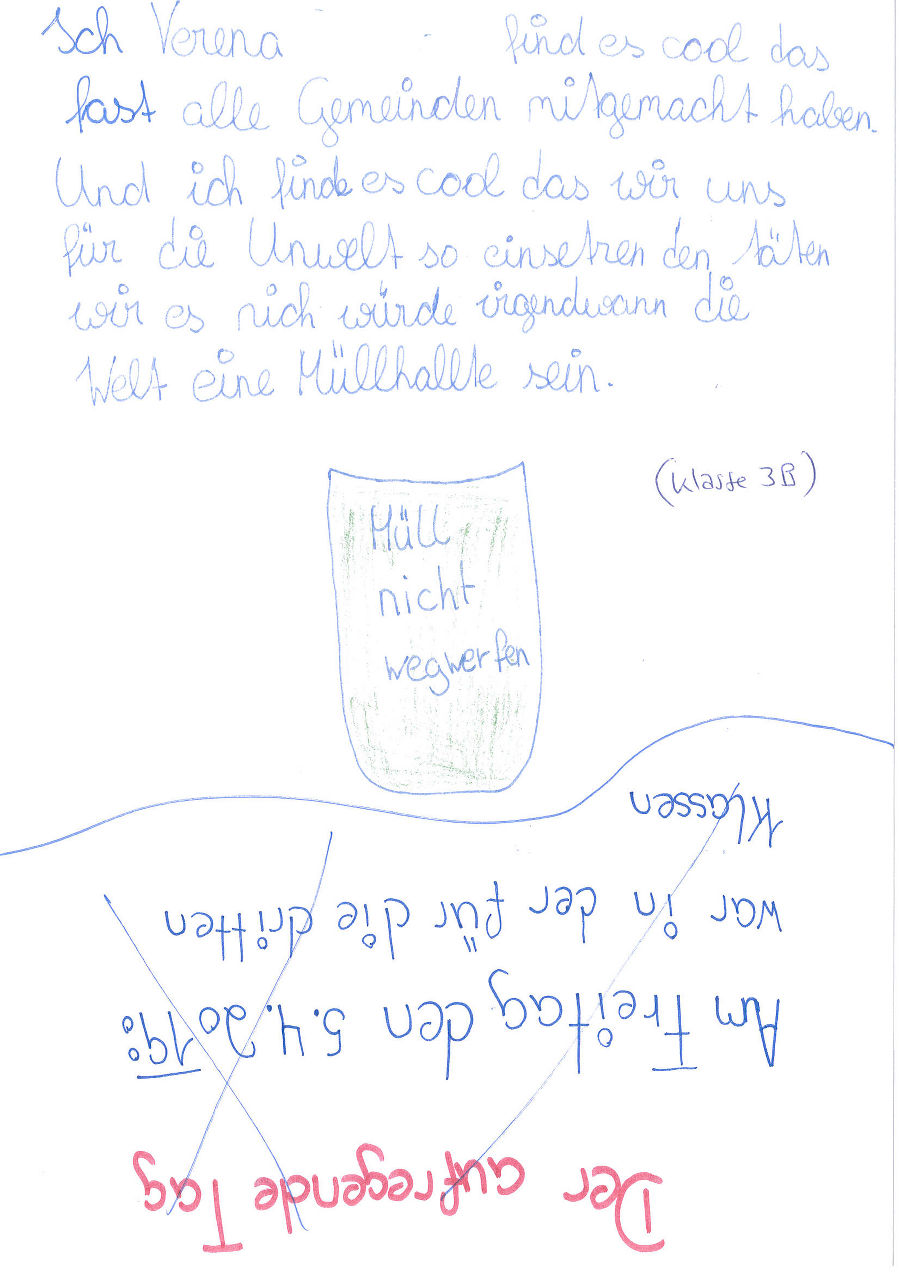 Ich Verena find es cool das
fast alle Gemeinden mitgemacht haben.
Und ich finde es cool das wir uns
für die Unwelt so einsetzen den täten
wir es nich würde irgendwann die
Welt eine Müllhallte sein.
(Klasse 3B)
Müll
nicht
wegwerfen
Der aufregende Tag
Am Freitag den 5.4.2019:
war in der für die dritten
Klassen